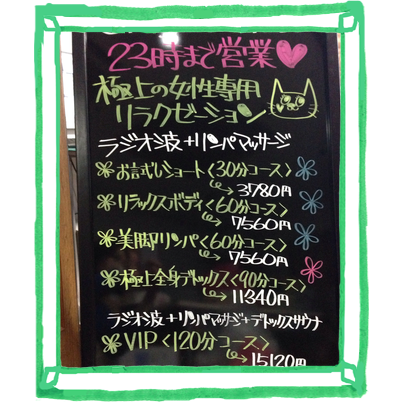 23時まで営業
極上の女性専用
リラクゼーション
ラジオ波+リンパマッサージ
お試しショート〈30分コース〉
3780円
リラックスボディ〈60分コース〉
7560円
美脚リンパ〈60分コース〉
7560円
極上全身デトックス〈90分コース〉
11340円
ラジオ波+リンパマッサージ+デトックスサウナ
VIP〈120分コース〉
15120円